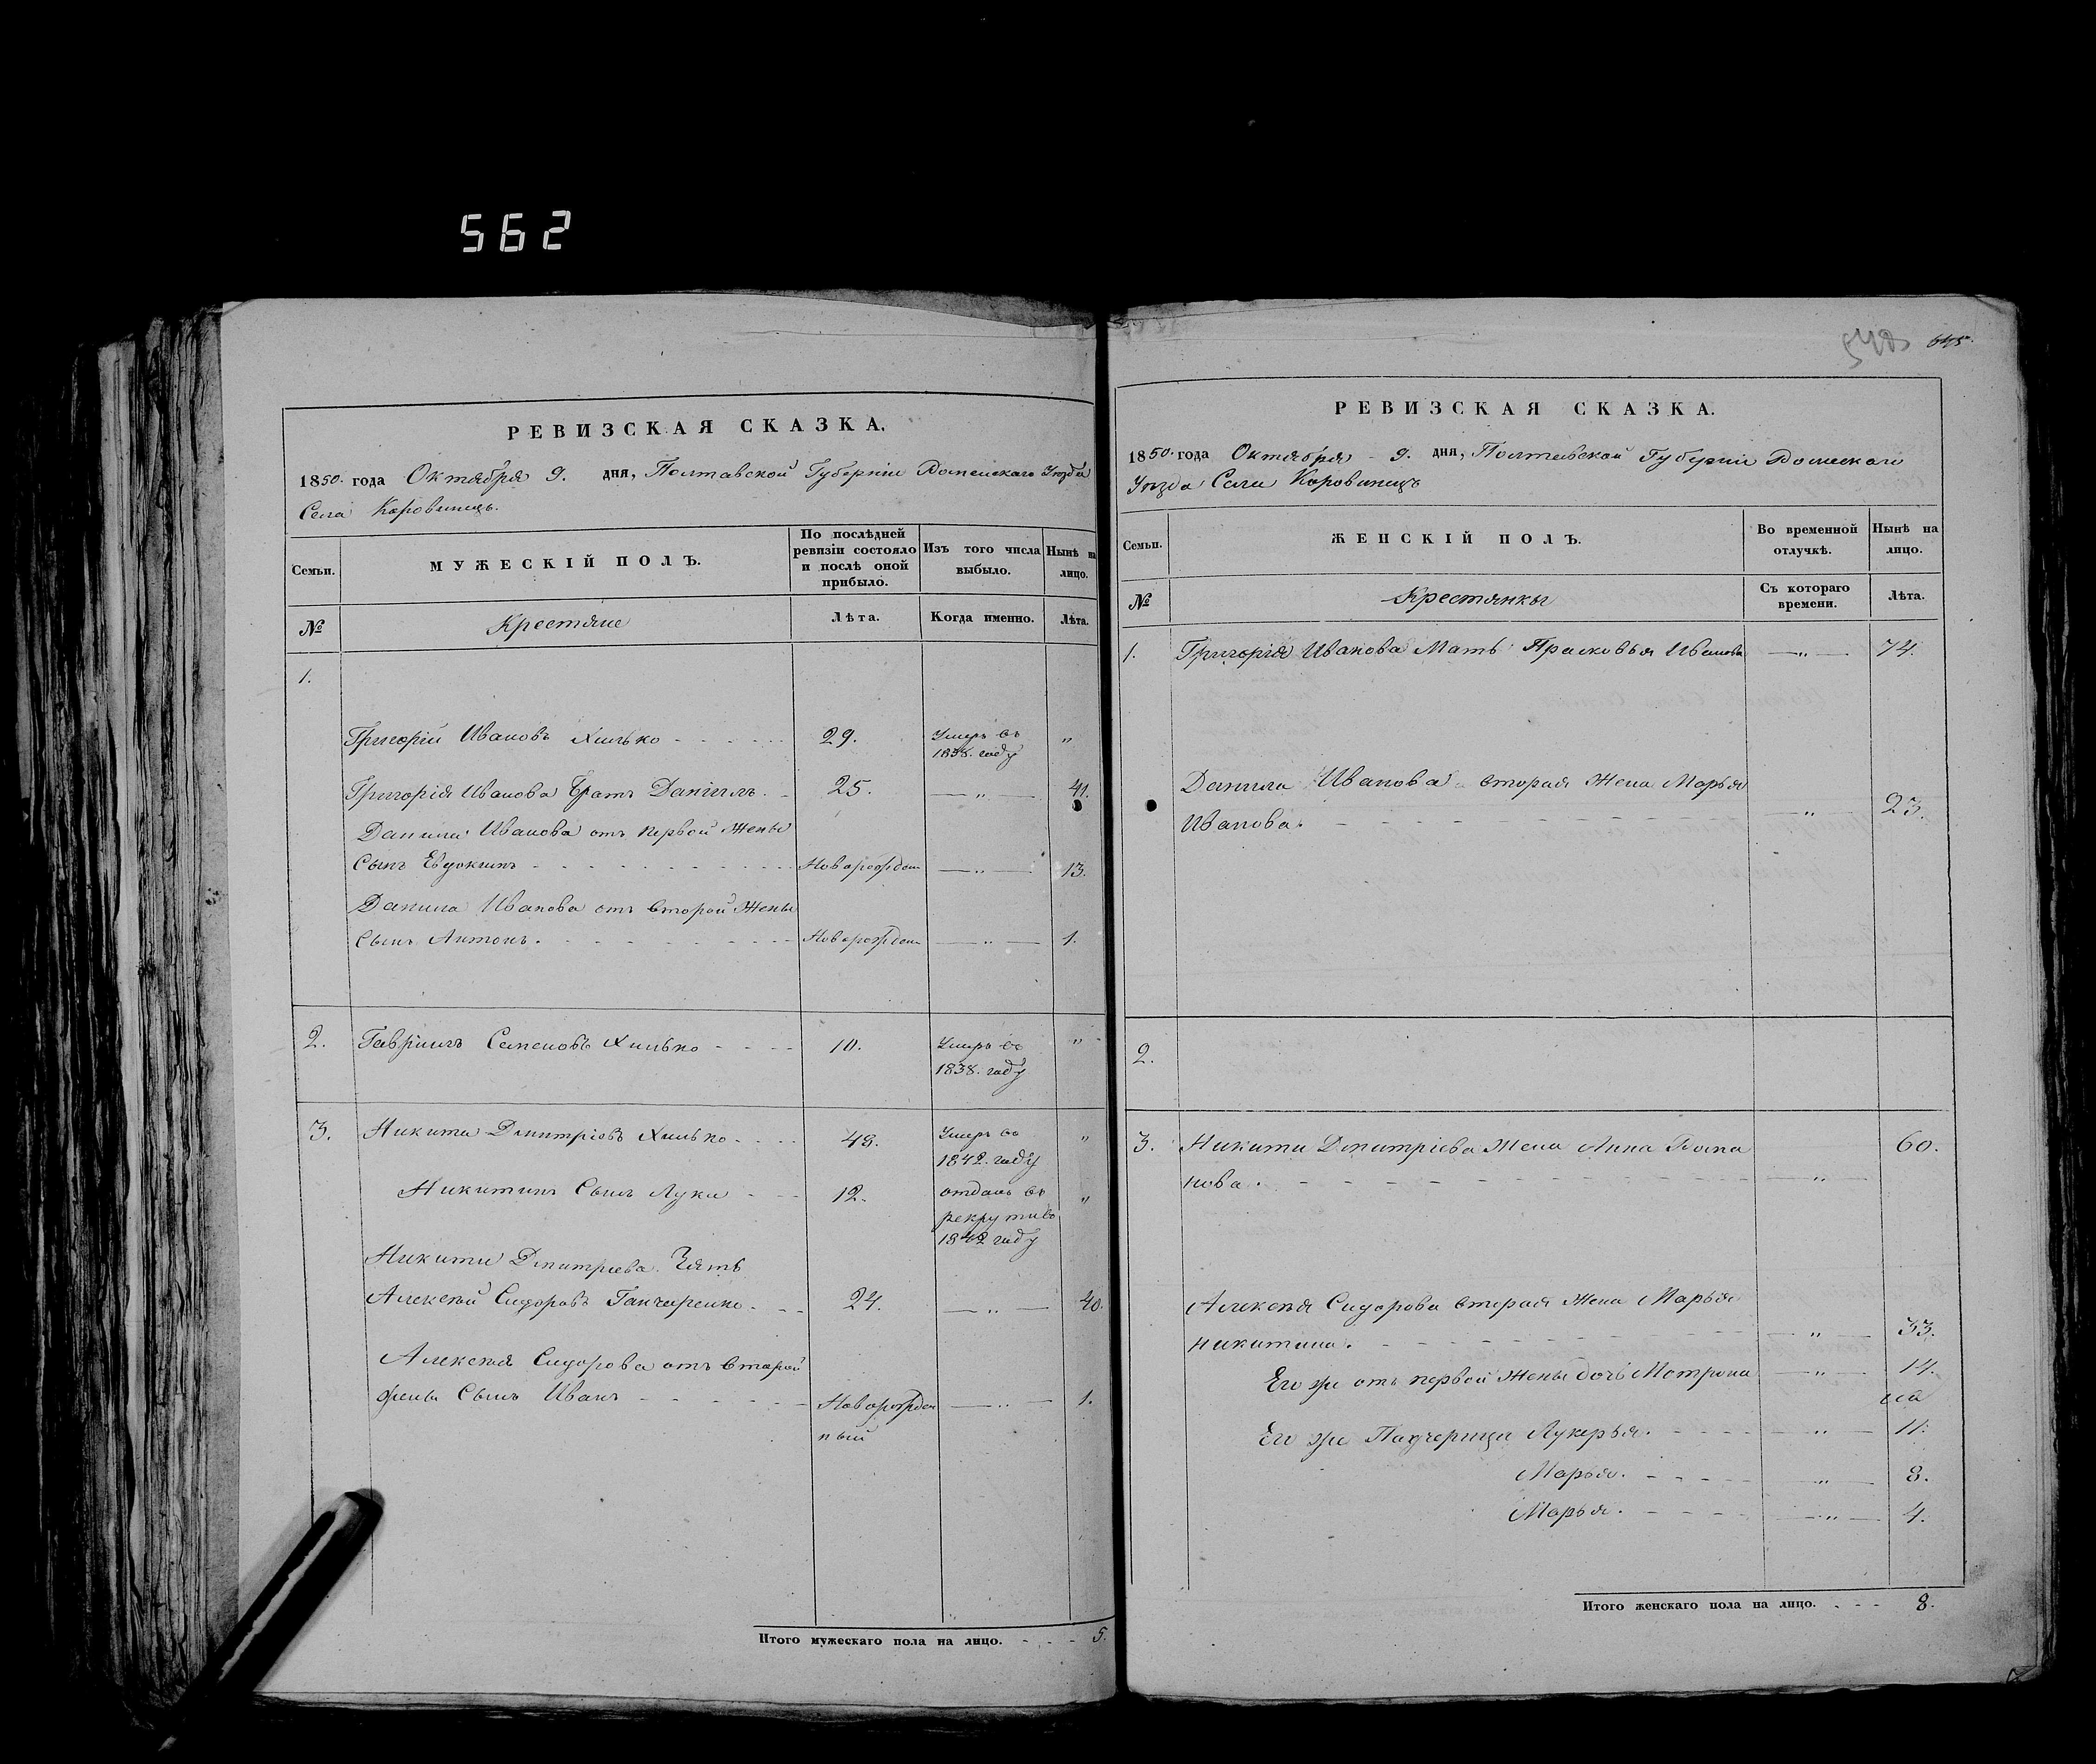 562
645.
РЕВИЗСКАЯ СКАЗКА.
1850. года Октября 9. дня, Полтавской Губерніи Роменскаго Уезда
Села Коровинецъ.
Семьи.
МУЖЕСКІЙ ПОЛЪ.
По послѣдней
ревизіи состояло
и послѣ оной
прибыло.
Изъ того числа
выбыло.
Нынѣ на
лицо.
№
Крестяне
Лѣта.
Когда именно.
Лѣта.
1.
Григорій Ивановъ Хилько - - - - - 29. Умеръ въ "
1838. году
Григорія Иванова Братъ Даніилъ. - 25. — " — 41.
Данила Иванова отъ первой Жены
Сынъ Евдокимъ - - - - - - Новорожден — " — 13.
Данила Иванова отъ второй Жены
Сынъ Антонъ. - - - - - - Новорожден — " — 1.
2. Гаврiилъ Семеновъ Хилько - - - - 10. Умеръ въ "
1838. году
3. Никита Дмитріевъ Хилько - - - - 48. Умеръ въ "
1842. году
Никитинъ Сынъ Лука - - - 12. отданъ въ "
рекруты въ
1842 году
Никиты Дмитріева Зять
Алексѣй Сидоровъ Ганчаренко - - - 24. — " — 40.
Алексѣя Сидорова отъ второй
жены Сынъ Иванъ - - - - - - Новорожден — " — 1.
ный
Итого мужескаго пола на лицо. - - - - 5.
РЕВИЗСКАЯ СКАЗКА.
1850. года Октября - 9. дня, Полтавской Губерніи Роменскаго
Уезда Села Коровинецъ
Семьи.
ЖЕНСКІЙ ПОЛЪ.
Во временной
отлучкѣ.
Нынѣ на
лицо.
№
Крестянкы
Съ котораго
времени.
Лѣта.
1. Григорія Иванова Мать Прасковья Иванова — " — 74.
Данила Иванова вторая Жена Марья
Иванова. - - - - - - - - — " — 23.
2.
3. Никиты Дмитріева Жена Анна 60.
нова. - - - - - - - - — " —
Алексѣя Сидорова вторая Жена Марья
Никитина. - - - - - - - - — " — 33.
Его же отъ первой Жены дочь Мотрона — " — 14.
Его же Падчерица Лукерья. - - - - — " — 11.
Марья. - - - - — " — 8.
Марья. - - - - — " — 4.
Итого женскаго пола на лицо. . - - - 8.